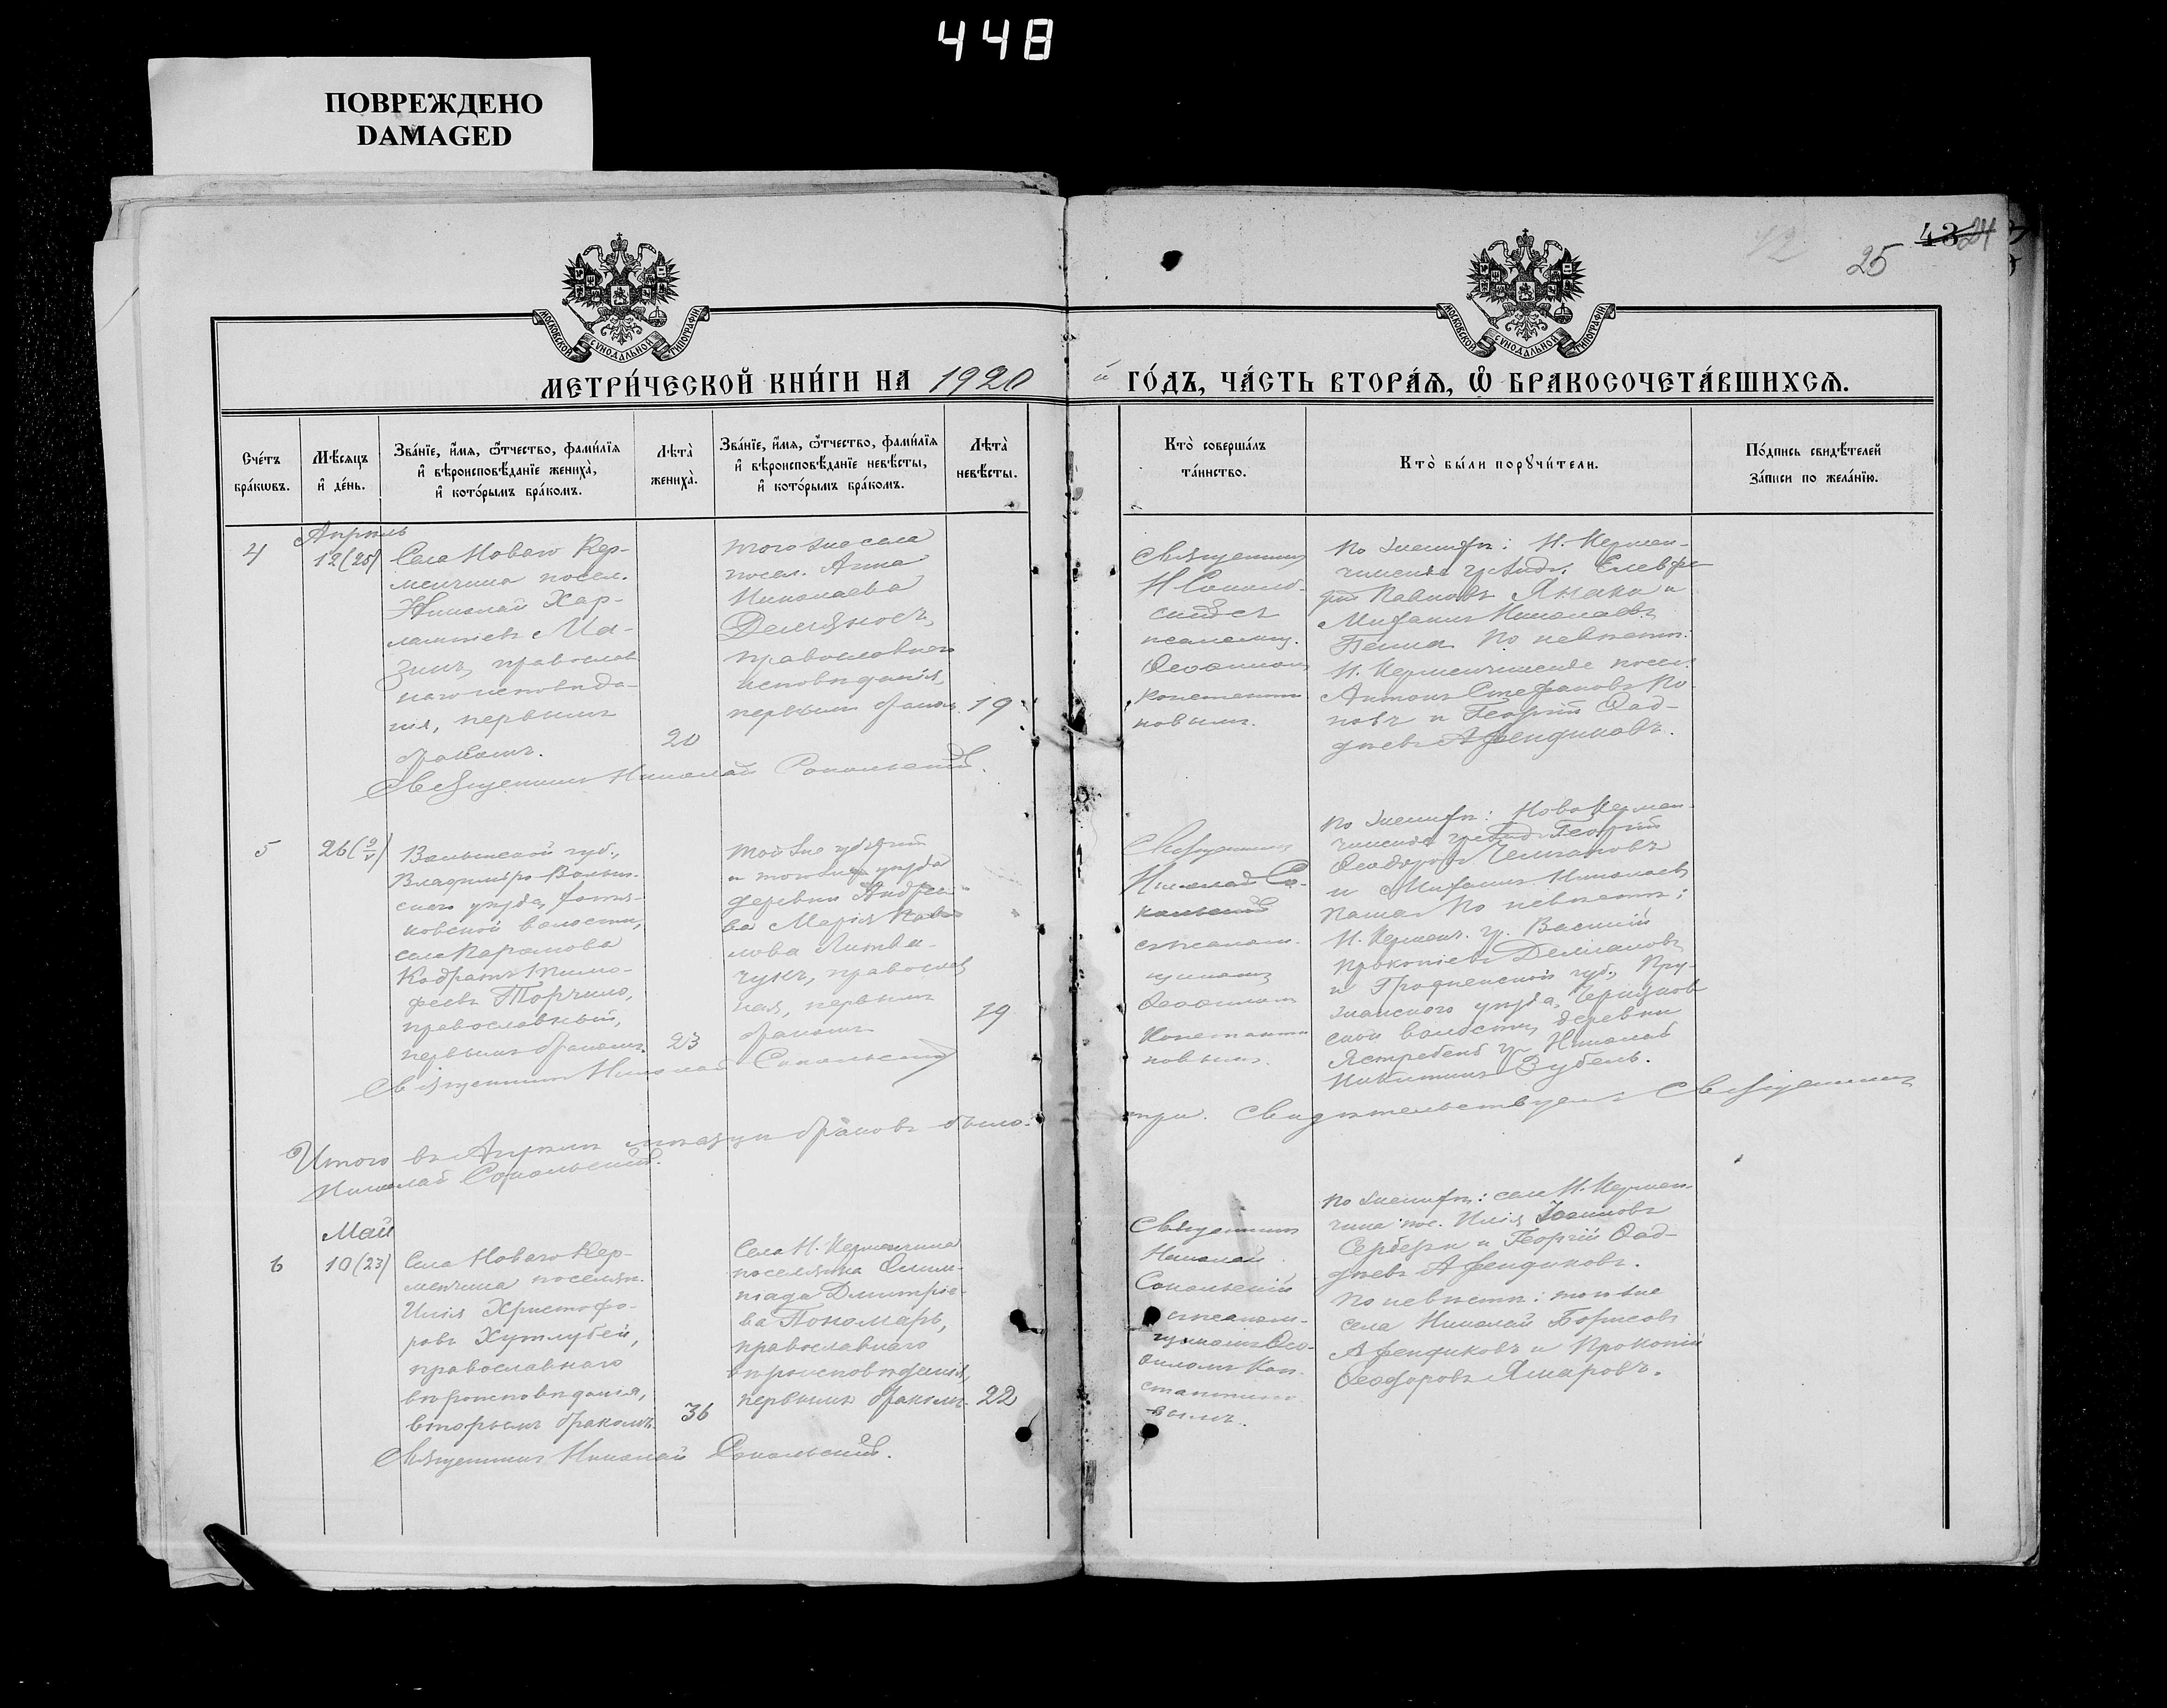 448
ПОВРЕЖДЕНО
DAMAGED
42
25
43
24
МОСКОВСКОЙ СѴНОДАЛЬНОЙ ТИПОГРАФІИ
МОСКОВСКОЙ СѴНОДАЛЬНОЙ ТИПОГРАФІИ
МЕТРИ́ЧЕСКОЙ КНИ́ГИ НА 1920 й ГО́ДЪ, ЧА́СТЬ ВТОРА́Я, Ѡ҆ БРАКОСОЧЕТА́ВШИХСЯ.
Сче́тъ
бра́кωвъ.
Мѣ́сяцъ
и҆ де́нь.
Зва́нїе, и҆́мя, ѻ҆́тчество, фами́лїя
и҆ вѣроисповѣ́данїе жениха̀,
и҆ кото́рымъ бра́комъ.
Лѣта̀
жениха̀.
Зва́нїе, и҆́мя, ѻ҆́тчество, фами́лїя
и҆ вѣроисповѣ́данїе невѣ́сты,
и҆ кото́рымъ бра́комъ.
Лѣта̀
невѣ́сты.
Кто̀ соверша́лъ
та́инство.
Кто̀ бы́ли порꙋчи́тели.
По́дпись свидѣ́телей
за́писи по жела́нїю.
4
Апрѣль
12 (25)
Села Новаго Кер-
менчика посел.
Николай Хар-
лампіевъ Ма-
зинъ, православ
наго исповѣда-
нія, первымъ
бракомъ.
20
того же села
посел. Анна
Николаева
православнаго
исповѣданія,
первымъ браком.
19
Священникъ
Н Соколь-
скій съ
псаломщ.
Ѳеофилом
Константи
новымъ.
По женихѣ: Н. Кермен-
Павловъ Янаки и
Митрофанъ Николаевъ
По невѣстѣ:
Н. Керменчикскіе посел.
Антонъ Стефановъ По-
повъ и Георгій Ѳад-
дѣевъ Афендиковъ.
Священникъ Николай Сокольскій.
5
26 (9/V)
Волынской губ.,
Владиміро-Волын-
скаго уѣзда,
ковской волости,
села
Кодратъ Тимо-
феевъ Торчило,
православный,
первымъ бракомъ.
23
той же губерніи
и того же уѣзда
деревни
Марія Пав-
лова Литвин-
чукъ, православ
ная, первымъ
бракомъ
19
Священникъ
Николай Со-
кольскій
съ псалом-
щикомъ
Ѳеофиломъ
Константи
новымъ.
По женихѣ: Ново Кермен-
Георгій
Ѳеодоровъ
и Митрофанъ Николаевъ
По невѣстѣ:
Н. Керменч. гр. Василій
Прокопіевъ
и Гродненской губ., Пру-
жанскаго уѣзда,
ской волости, деревни
гр. Николай
Никитинъ Зубель.
Священникъ Николай Сокольскій
Итого въ Апрѣлѣ мѣсяцѣ браковъ было три. Свидѣтельствуетъ Священникъ
Николай Сокольскій.
6
Май
10 (23)
Села Новаго Кер-
менчика поселян.
Илія Христофо-
ровъ Хутлубей,
православнаго
вѣроисповѣданія,
вторымъ бракомъ
36
Села Н. Керменчика
поселянка Олим-
піада Димитріе-
ва Пономарь,
православнаго
вѣроисповѣданія,
первымъ бракомъ.
22
Священникъ
Николай
Сокольскій
съ псалом-
щикомъ Ѳео-
филомъ Кон-
стантино-
вымъ.
По женихѣ: села Н. Кермен-
чика пос. Илія
и Георгій Ѳад-
дѣевъ Афендиковъ.
По невѣстѣ: того же
села Николай Борисовъ
Афендиковъ и Прокопій
Ѳеодоровъ Ямаровъ.
Священникъ Николай Сокольскій.